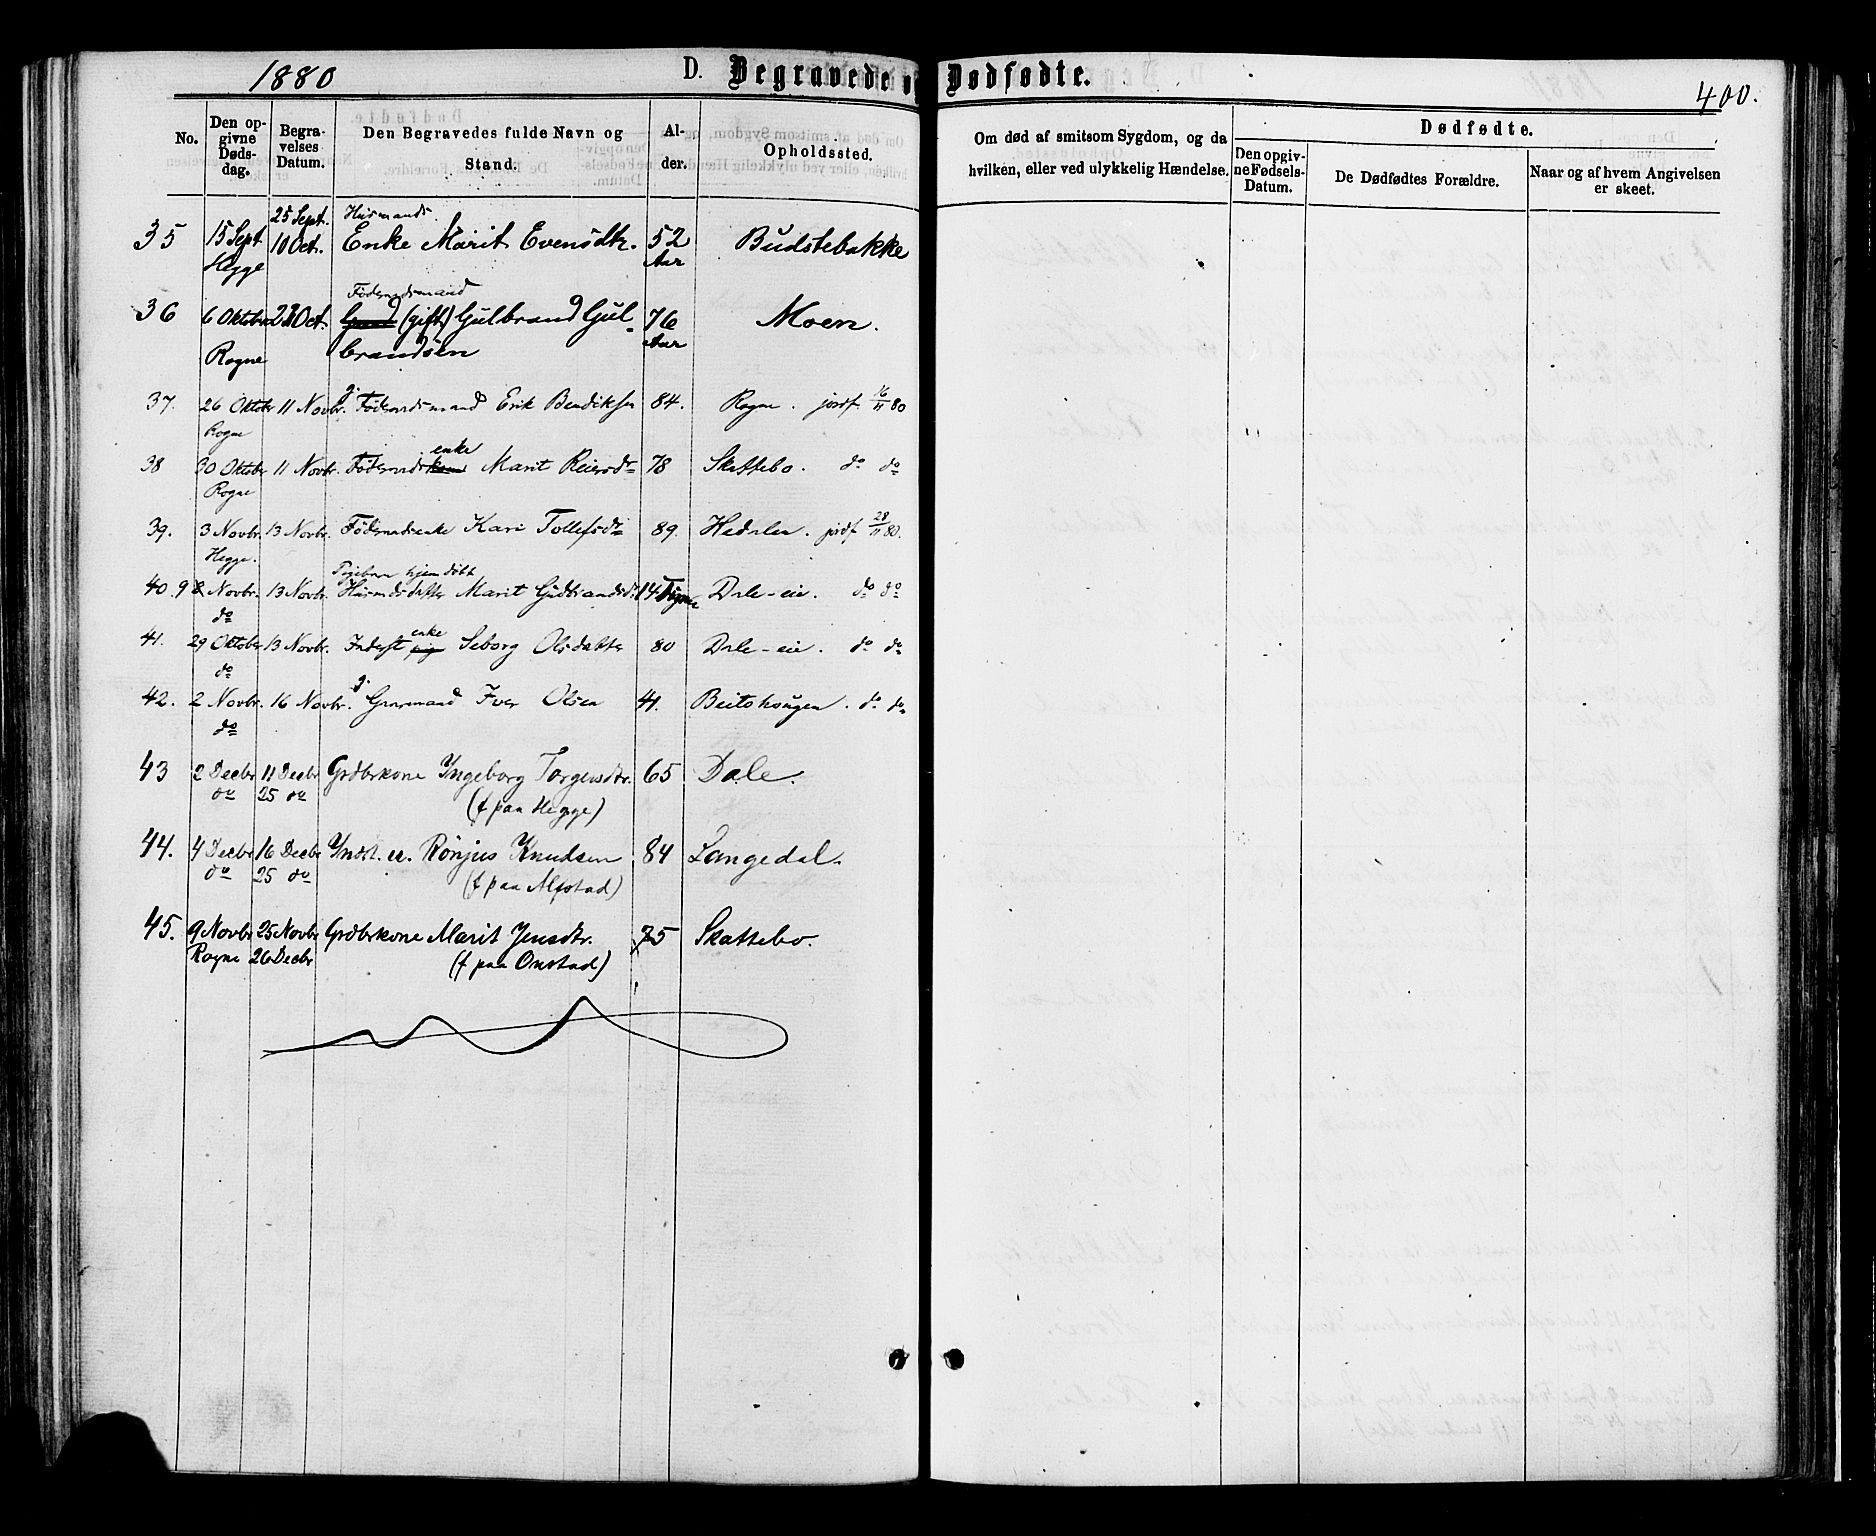 1880
D. Begravede o Dødfødte.
400.
No.
Den op-
givne
Døds-
dag.
Begra-
velses
Datum.
Den Begravedes fulde Navn og
Stand.
Al-
der.
Opholdssted.
Om død af smitsom Sygdom, og da
hvilken, eller ved ulykkelig Hændelse.
Dødfødte.
Den opgiv-
ne Fødsels-
Datum.
De Dødfødtes Forældre.
Naar og af hvem Angivelsen
er skeet.
25 Sept. Husmands
35 15 Sept 10 Oct. Enke Marit Evensdtr. 52 Budstebakke
Hegge Aar
Föderaadsmand
36 6 Oktober Oct. (gift) Gulbrand Gul- 76 Moen.
Rogne brandsen Aar
37. 26 Oktober 11 Novbr. g. Föderaadsmand Erik Bendiksen 84. Rogne. jordf. 16/11 80
Rogne
enke
38 30 Oktober 11 Novbr. Föderaads Marit Reiersdr 78 Skattebo. do do
Rogne
39. 3 Novbr. 13 Novbr. Föderaadsenke Kari Tollefsdtr 89. Hedalen. jordf 28/11 80.
Hegge.
hjemdöbt
40. 9 Novbr. 13 Novbr. Marit Gudbrandsdr 14 Dale-eie. do do
do
enke
41. 29 Oktober 13 Novbr. Inderst Seborg Olsdatter 80 Dale-eie. do do
do
42. 2 Novbr. 16 Novbr. g. Gaardmand Iver Olsen 41. Beitohaugen. do do
do
43 2 Decbr 11 Decbr Grdbrkone Ingeborg Torgersdtr. 65 Dale.
do 25 do (f paa Hegge)
44. 4 Decbr 16 Decbr Indst. e. Rönjus Knudsen 84 Langedal.
do 25 do (f paa Alfstad)
45. 9 Novbr 25 Novbr Grdbrkone Marit Jensdtr. 75 Skattebo.
Rogne 26 Decbr (f paa Onstad)